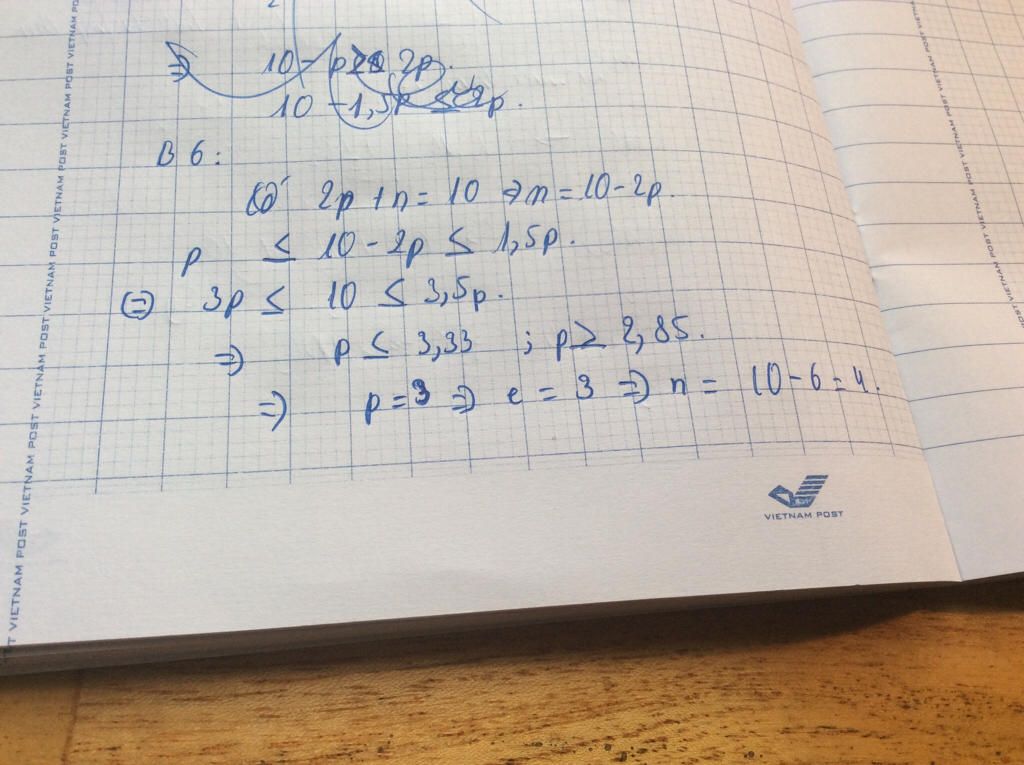 ⇒ 10 - p 2p.
10 - 1,5p ≤ 2p.
B6:
Có 2p + n = 10 ⇒ n = 10 - 2p.
p ≤ 10 - 2p ≤ 1,5p.
⇔ 3p ≤ 10 ≤ 3,5p.
⇒ p ≤ 3,33 ; p ≥ 2,85.
⇒ p = 3 ⇒ e = 3 ⇒ n = 10 - 6 = 4.
VIETNAM POST
VIETNAM POST VIETNAM POST VIETNAM POST VIETNAM POST VIETNAM POST VIETNAM POST